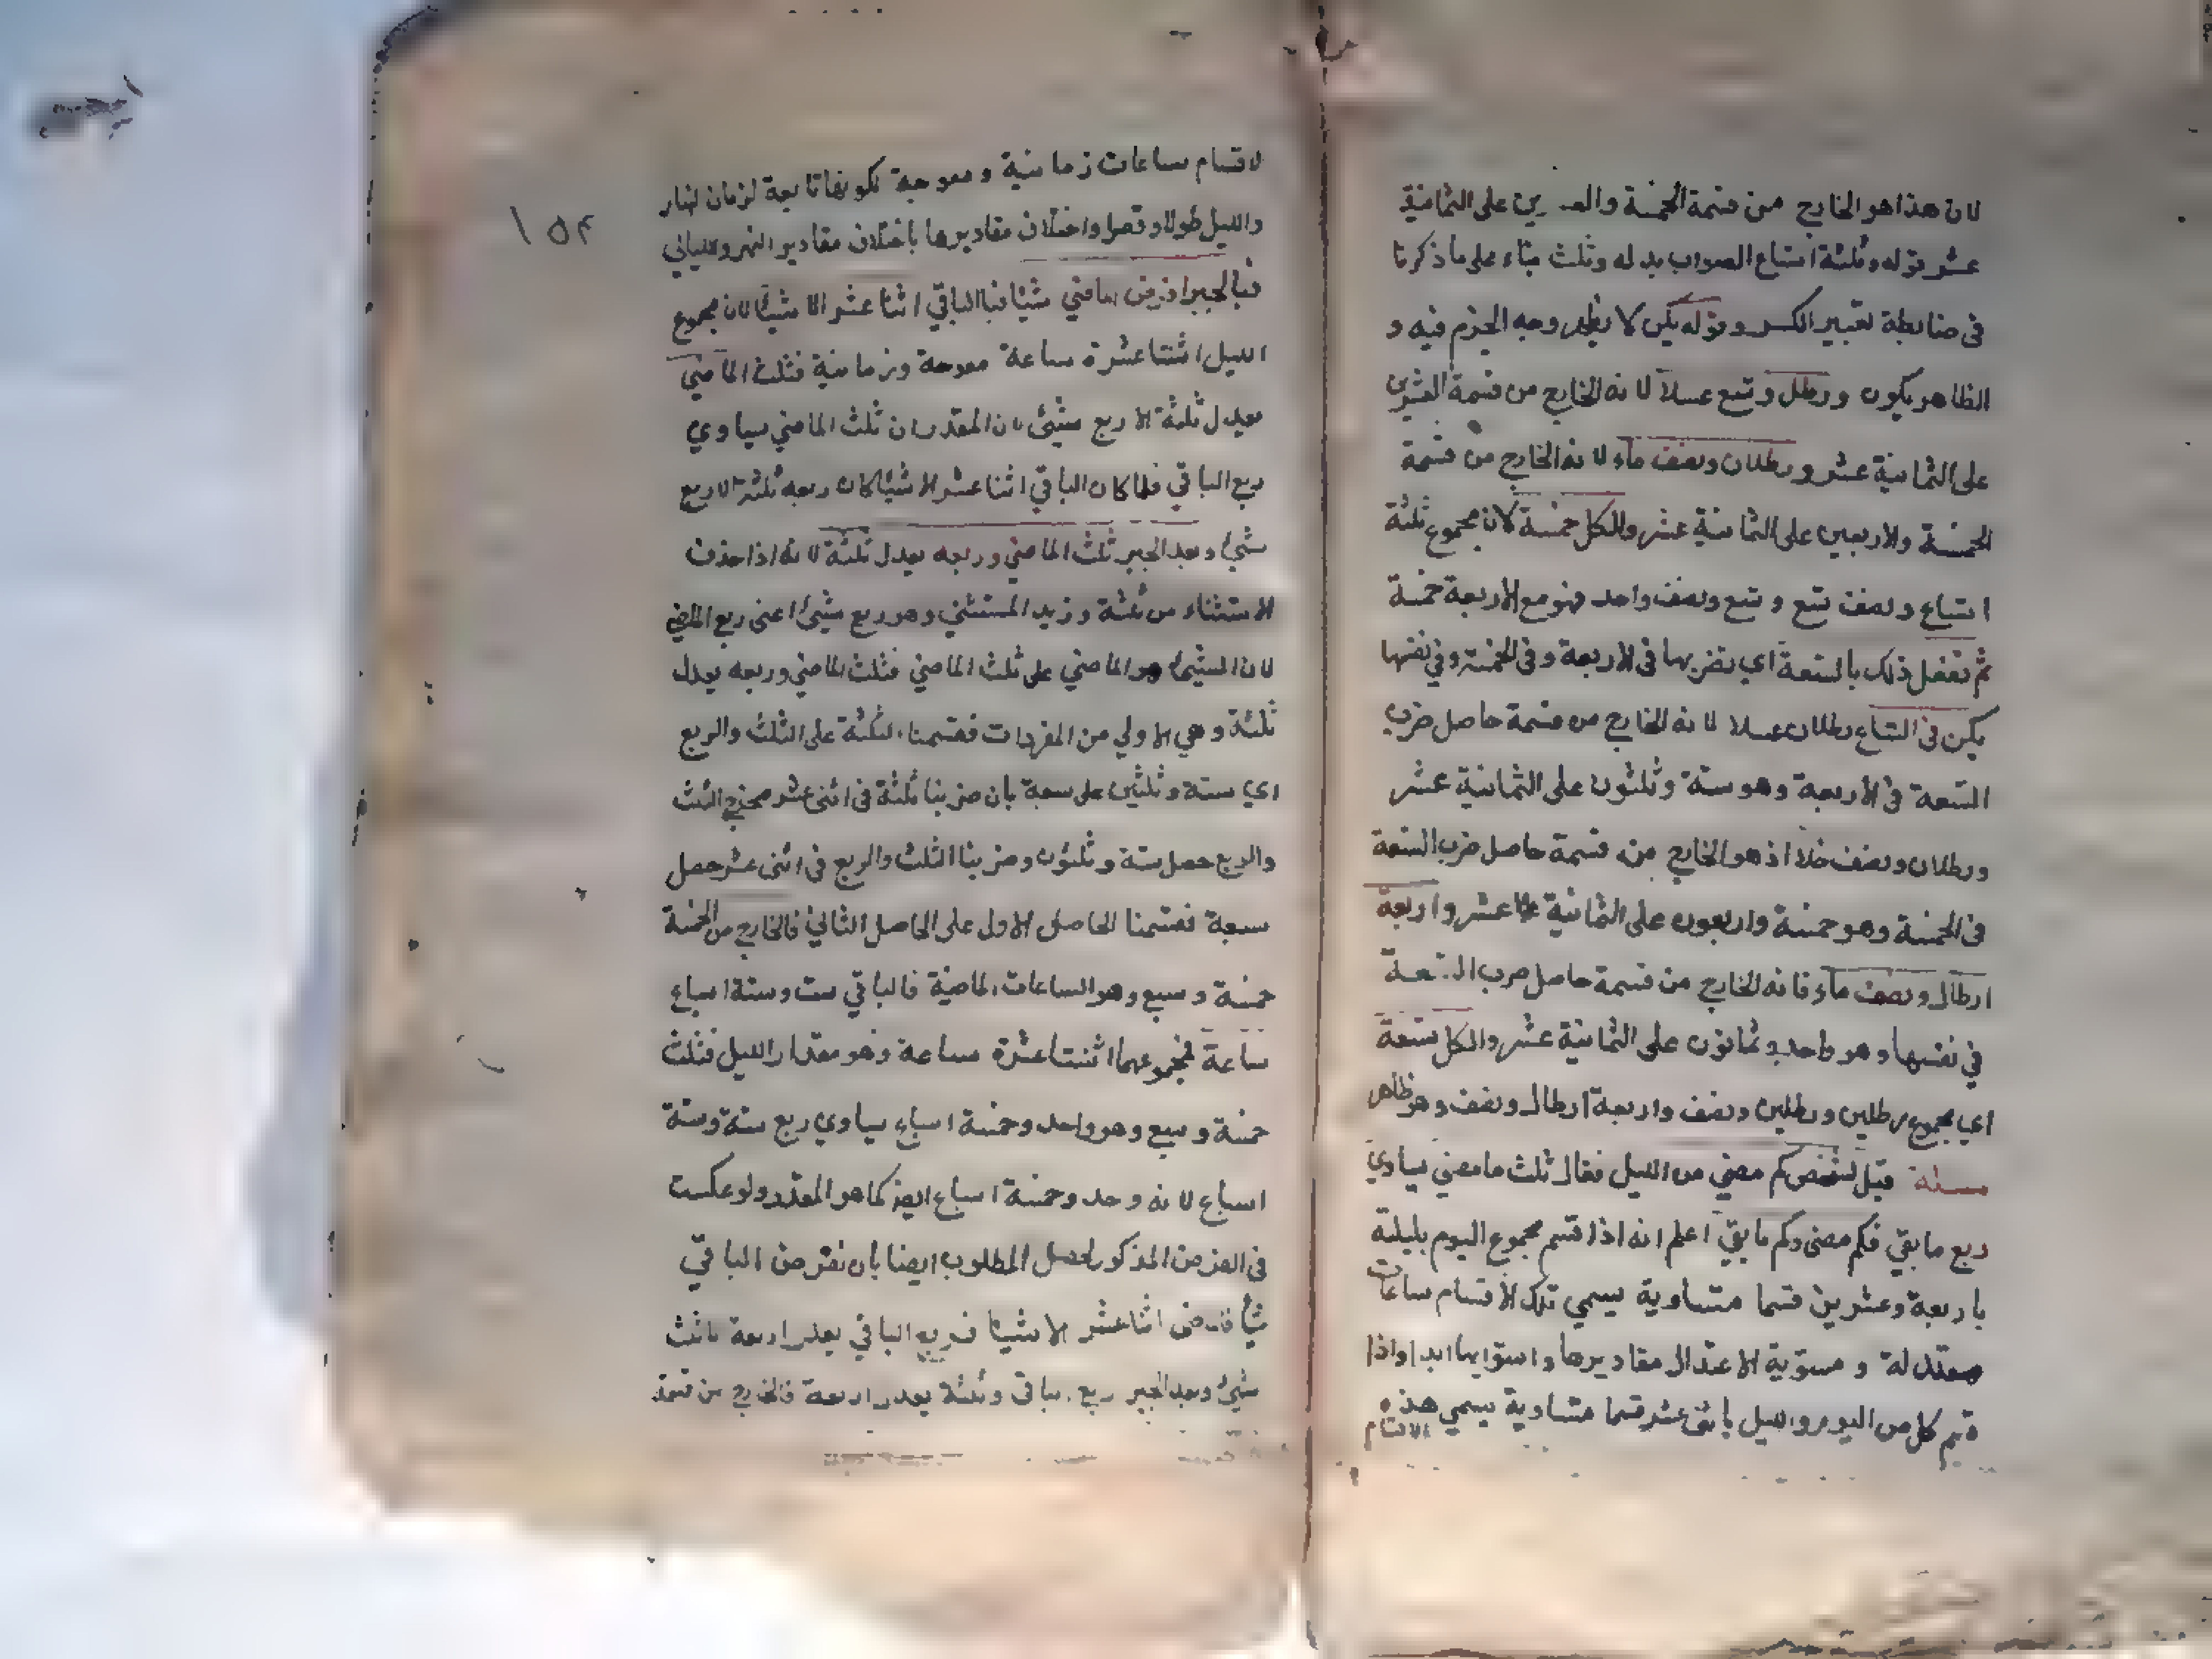 لان هذا هو الخارج من قسمة الخمسة والعـ ـرين على الثمانية
عشر قوله وثلثة اتساع الصواب بدله وثلث بناء على ما ذكرنا
فى ضابطة تعبير الكسر وقوله يكن لا يظهر وجه الجزم فيه و
الظاهر يكون ورطل وتسع عسلا لانه الخارج من قسمة العشرين
على الثمانية عشر ورطلان ونصف ماء لانه الخارج من قسمة
الخمسة والاربعين على الثمانية عشر والكل خمسة لان مجموع ثلثة
اتساع ونصف تسع وتسع ونصف واحد فهو مع الاربعة خمسة
ثم تفعل ذلك بالتسعة اي تضربها فى الاربعة وفى الخمسة وفي نفسها
يكن فى التساع رطلان عسلا لانه الخارج من قسمة حاصل ضرب
التسعة فى الاربعة وهو ستة وثلثون على الثمانية عشر
ورطلان ونصف خلا اذ هو الخارج من قسمة حاصل ضرب التسعة
فى الخمسة وهو خمسة واربعون على الثمانية عشر واربعة
ارطال ونصف ماء فانه الخارج من قسمة حاصل ضرب التسعة
في نفسها وهو واحد وثمانون على الثمانية عشر والكل تسعة
اي مجموع رطلين ورطلين ونصف واربعة ارطال ونصف وهو ظاهر
مسئلة قيل لشخص كم مضي من الليل فقال ثلث ما مضي يساوي
ربع ما بقي فكم مضى وكم ما بقي اعلم انه اذا قسم مجموع اليوم بليلته
باربعة وعشرين قسما متساوية يسمي تلك الاقسام ساعات
معتدلة و مستوية الاعتدال مقاديرها واستوايها ابدا واذا
قسم كل من اليوم والليل باثنى عشر قسما متساوية يسمي هذه
الاقسام
١٥٢
لاقسام ساعات زمانية و معوجة لكونها تابعة لزمان النهار
والليل طولا وقصرا واختلاف مقاديرها باختلاف مقادير النهر والليالي
فبالجبر افرض الماضي شيئا فالباقي اثنا عشر الا شيئا لان مجموع
الليل اثنتا عشرة ساعة معوجة وزمانية فثلث الماضي
يعدل ثلثة الا ربع شيئ لان المقدر ان ثلث الماضي يساوي
ربع الباقي فلما كان الباقي اثنا عشر الا شيئا كان ربعه ثلثة الا ربع
شيئ وبعد الجبر ثلث الماضي وربعه يعدل ثلثة لانه اذا حذف
الاستثناء من ثلثة وزيد المستثني وهو ربع شيئ اعنى ربع الماضي
لان الشيئ هو الماضي على ثلث الماضي فثلث الماضي وربعه يعدل
ثلثة وهي الاولي من المفردات فقسمنا الثلثة على الثلث والربع
اي ستة وثلثين على سبعة بان ضربنا ثلثة فى اثنى عشر مخرج الثلث
والربع حصل ستة وثلثون وضربنا الثلث والربع فى اثنى عشر حصل
سبعة فقسمنا الحاصل الاول على الحاصل الثاني فالخارج من القسمة
خمسة وسبع وهو الساعات الماضية فالباقي ست وستة اسباع
ساعة فمجموعهما اثنتا عشرة ساعة وهو مقدار الليل فثلث
خمسة وسبع وهو واحد وخمسة اسباع يساوي ربع ستة وستة
اسباع لانه واحد وخمسة اسباع ايضا كما هو المقدر ولو عكست
فى الفرض المذكور لحصل المطلوب ايضا بان نفرض الباقي
شيأ فالماضى اثنا عشر الا شيئا فربع الباقي يعدل اربعة الا ثلث
شيئ وبعد الجبر ربع الباقى وثلثة يعدل اربعة فالخارج من قسمة